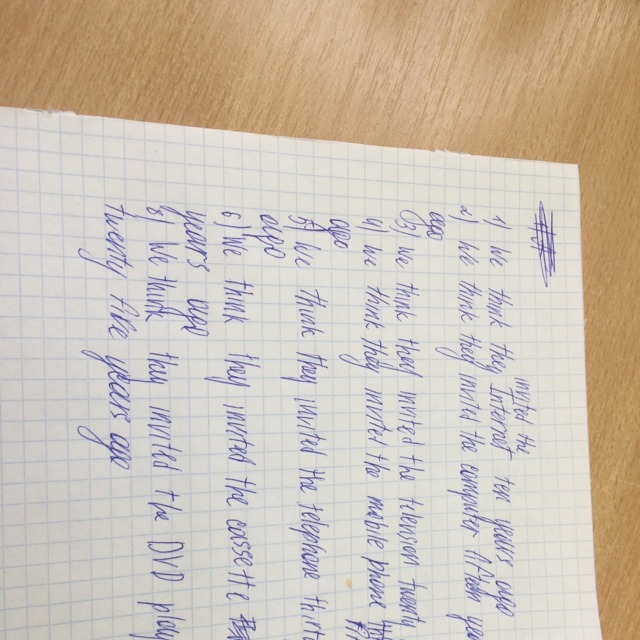 invited the
1) We think they Internet ten years ago
2) We think they invited the computer
ago
3) We think they invited the television twenty
4) We think they invited the mobile phone
ago
5) We think they invited the telephone
ago
6) We think they invited the cassette
years ago
8) We think they invited the DVD
twenty five years ago